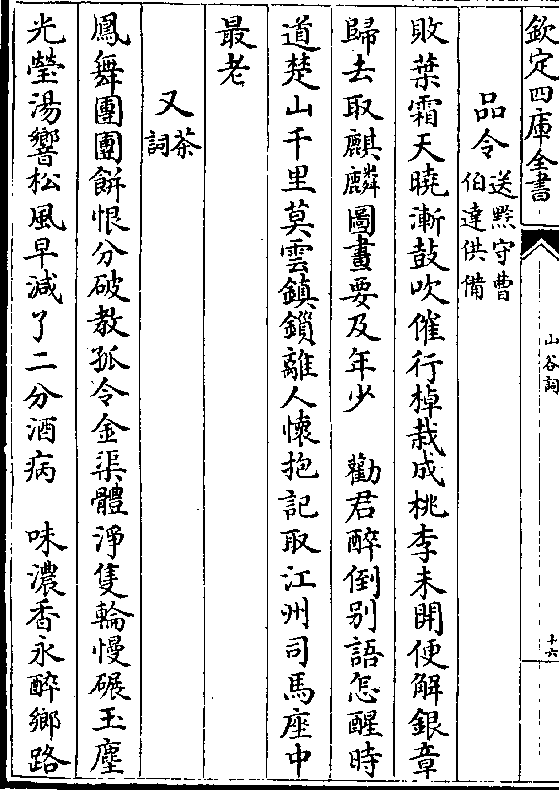 欽定四庫全書
山谷詞
十六
品令送黔守曹伯達供備
敗葉霜天曉漸鼓吹催行棹栽成桃李未開便解銀章
歸去取麒麟圖畫要及年少　勸君醉倒别語怎醒時
道楚山千里莫雲鎮鎖離人懷抱記取江州司馬座中
最老
又茶詞
鳳舞團團餅恨分破教孤令金渠體淨隻輪慢碾玉塵
光瑩湯響松風早減了二分酒病　味濃香永醉鄉路